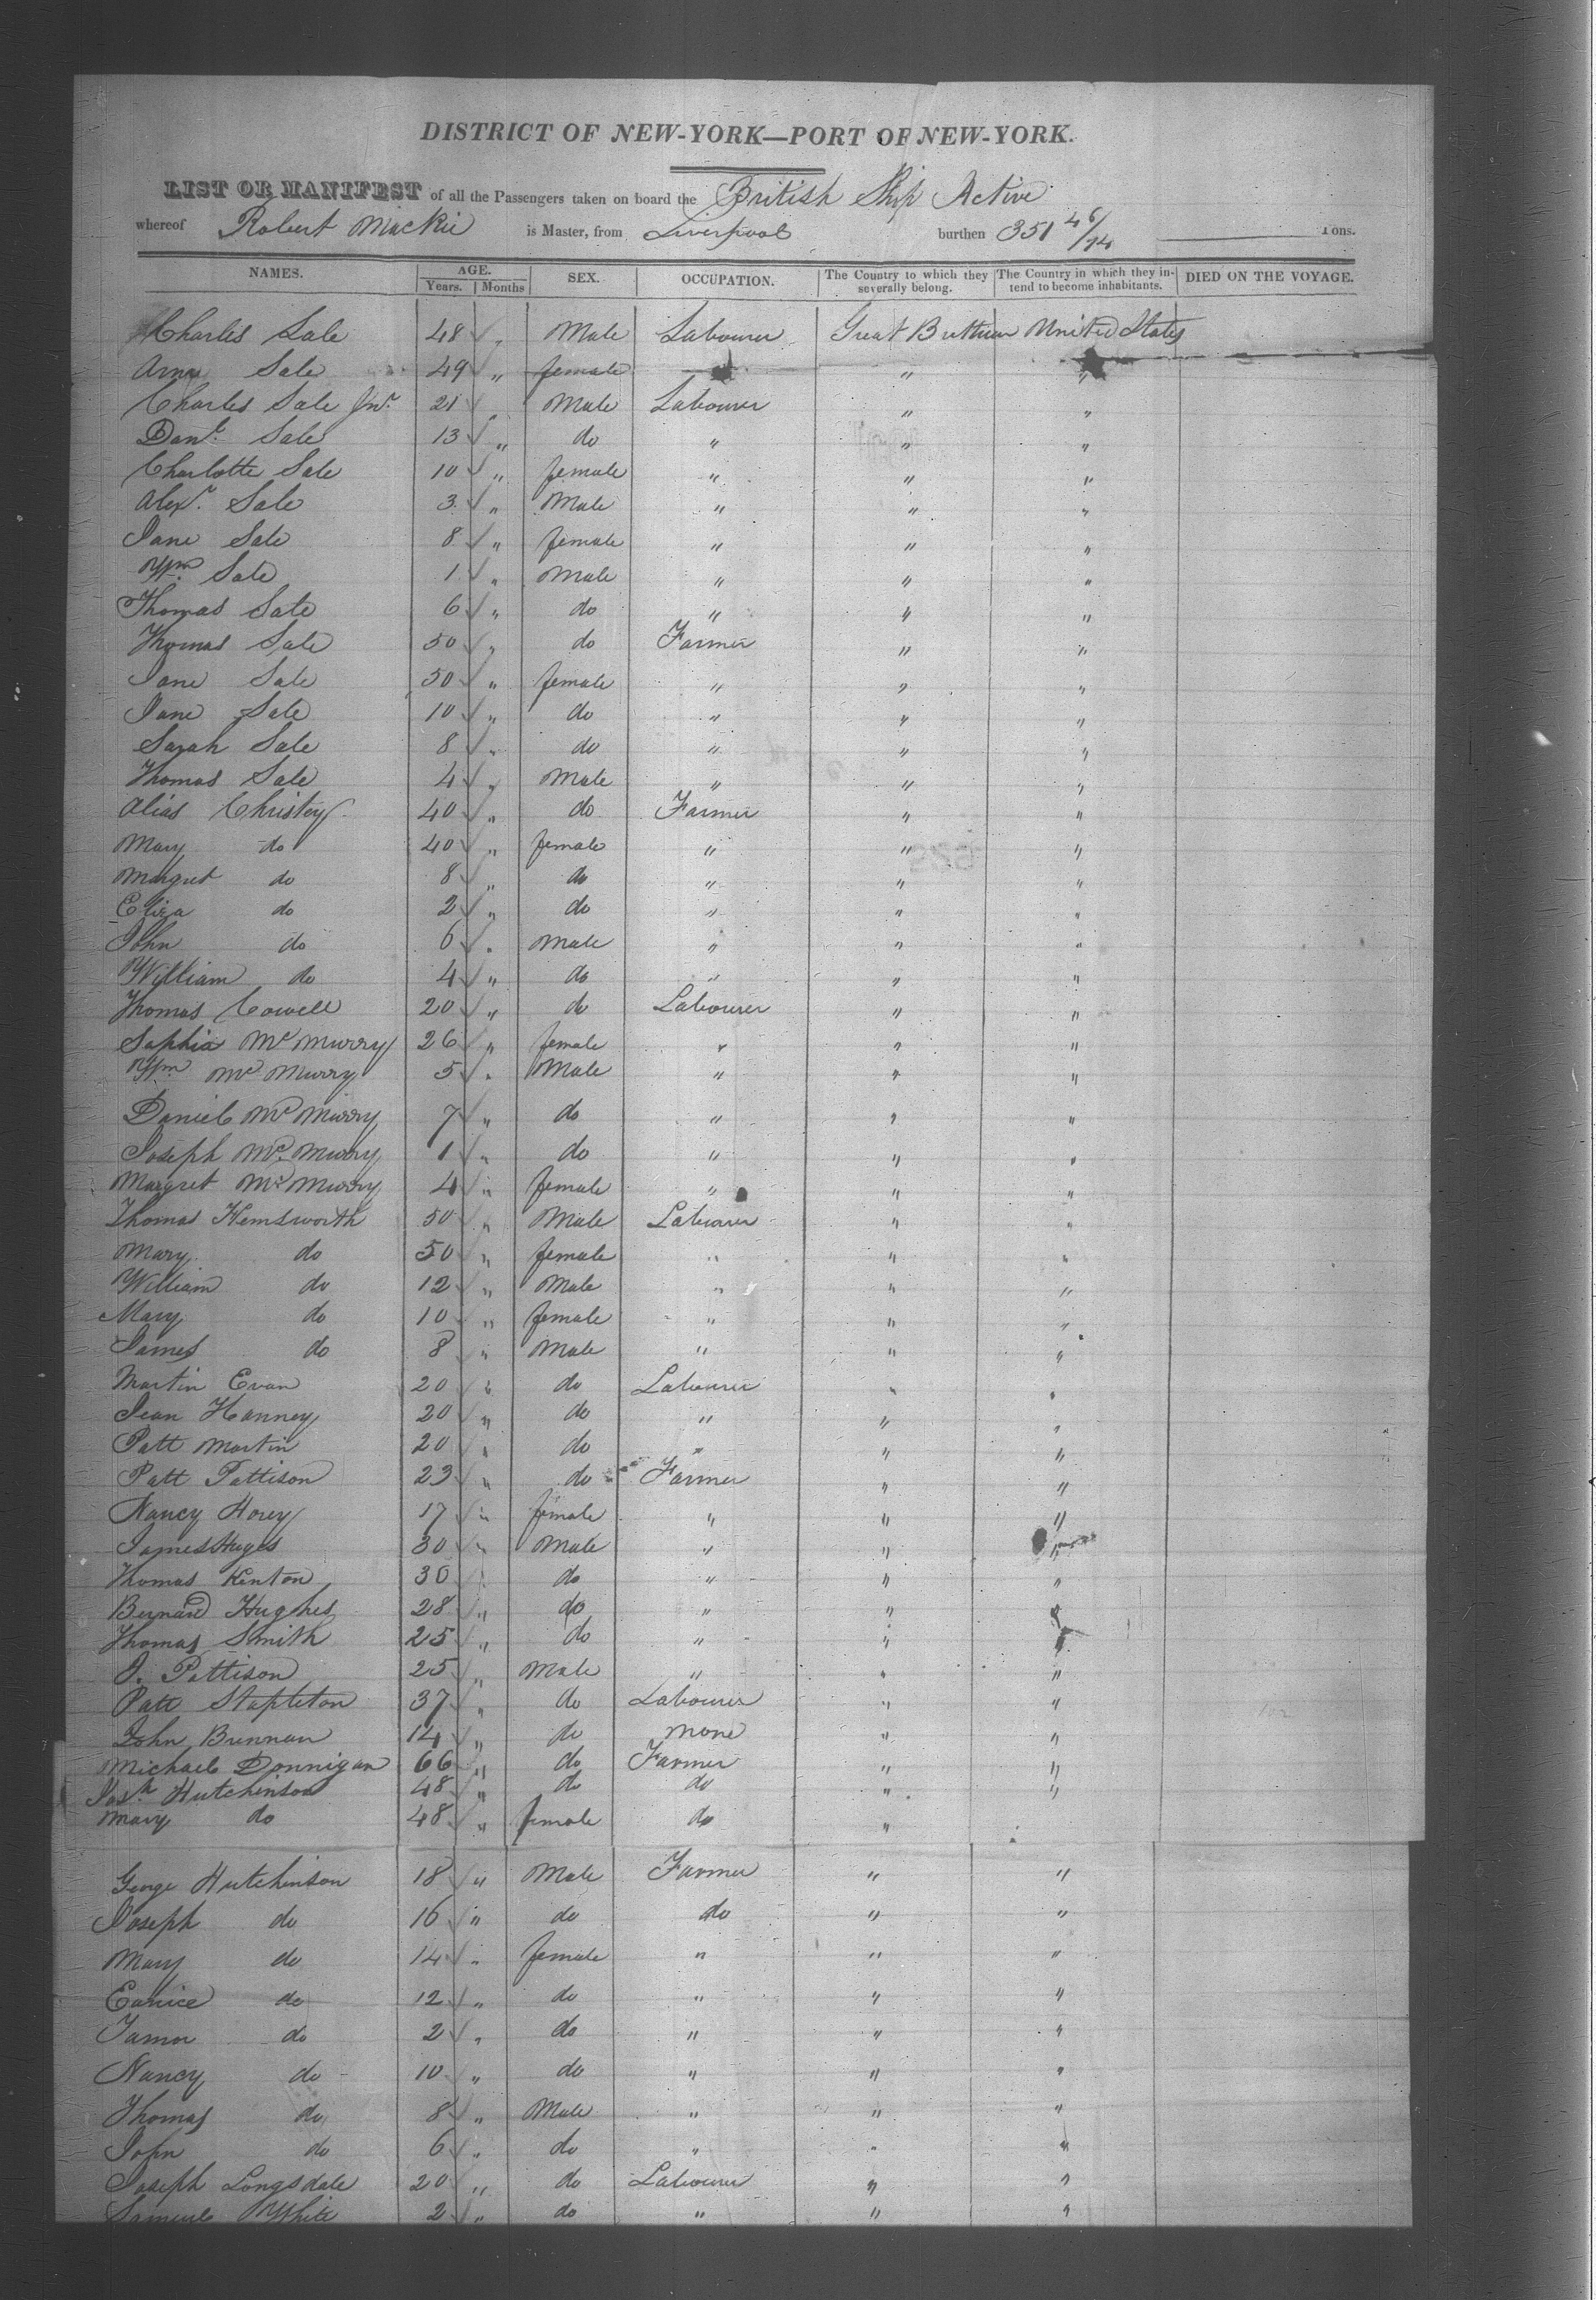 DISTRICT OF NEW-YORK—PORT OF NEW-YORK.
LIST OR MANIFEST of all the Passengers taken on board the British Ship Active
whereof Robert Mackie is Master, from Liverpool burthen 351 46/94 Tons.
NAMES. AGE. Years. Months SEX. OCCUPATION. The Country to which they severally belong. The Country in which they intend to become inhabitants. DIED ON THE VOYAGE.
Charles Sale 48 " Male Labourer Great Brittian United States
Anne Sale 49 " female " "
Charles Sale Junr. 21 " Male Labourer " "
Danl. Sale 13 " do " " "
Charlotte Sale 10 " female " " "
Alexr. Sale 3 " Male " " "
Jane Sale 8 " female " " "
Wm. Sale 1 " Male " " "
Thomas Sale 6 " do " " "
Thomas Sale 50 " do Farmer " "
Jane Sale 50 " female " " "
Jane Sale 10 " do " " "
Sarah Sale 8 " do " " "
Thomas Sale 4 " Male " " "
Alias Christey 40 " do Farmer " "
Mary do 40 " female " " "
Margret do 8 " do " " "
Eliza do 2 " do " " "
John do 6 " Male " " "
William do 4 " do " " "
Thomas Cowell 20 " do Labourer " "
Sophia Mc Murry 26 " female " " "
Wm Mc Murry 5 " Male " " "
Daniel Mc Murry 7 " do " " "
Joseph Mc Murry 1 " do " " "
Margret Mc Murry 4 " female " " "
Thomas Hemsworth 50 " Male Labourer " "
Mary do 50 " female " " "
William do 12 " Male " " "
Mary do 10 " female " " "
James do 8 " Male " " "
Martin Evan 20 " do Labourer " "
Jean Hanney 20 " do " " "
Patt Martin 20 " do " " "
Patt Pattison 23 " do Farmer " "
Nancy Horey 17 " female " " "
James Huges 30 " Male " " "
Thomas Kenton 30 " do " " "
Bernard Hughes 28 " do " " "
Thomas Smith 25 " do " " "
J. Pattison 25 " Male " " "
Patt Stapleton 37 " do Labourer " "
John Brennan 14 " do None " "
Michael Donnigan 66 " do Farmer " "
Josh Hutchinson 48 " do do " "
Mary do 48 " female do " "
George Hutchinson 18 " Male Farmer " "
Joseph do 16 " do do " "
Mary do 14 " female " " "
Eunice do 12 " do " " "
Tamer do 2 " do " " "
Nancy do 10 " do " " "
Thomas do 8 " Male " " "
John do 6 " do " " "
Joseph Longsdale 20 " do Labourer " "
Samuel White 2 " do " " "